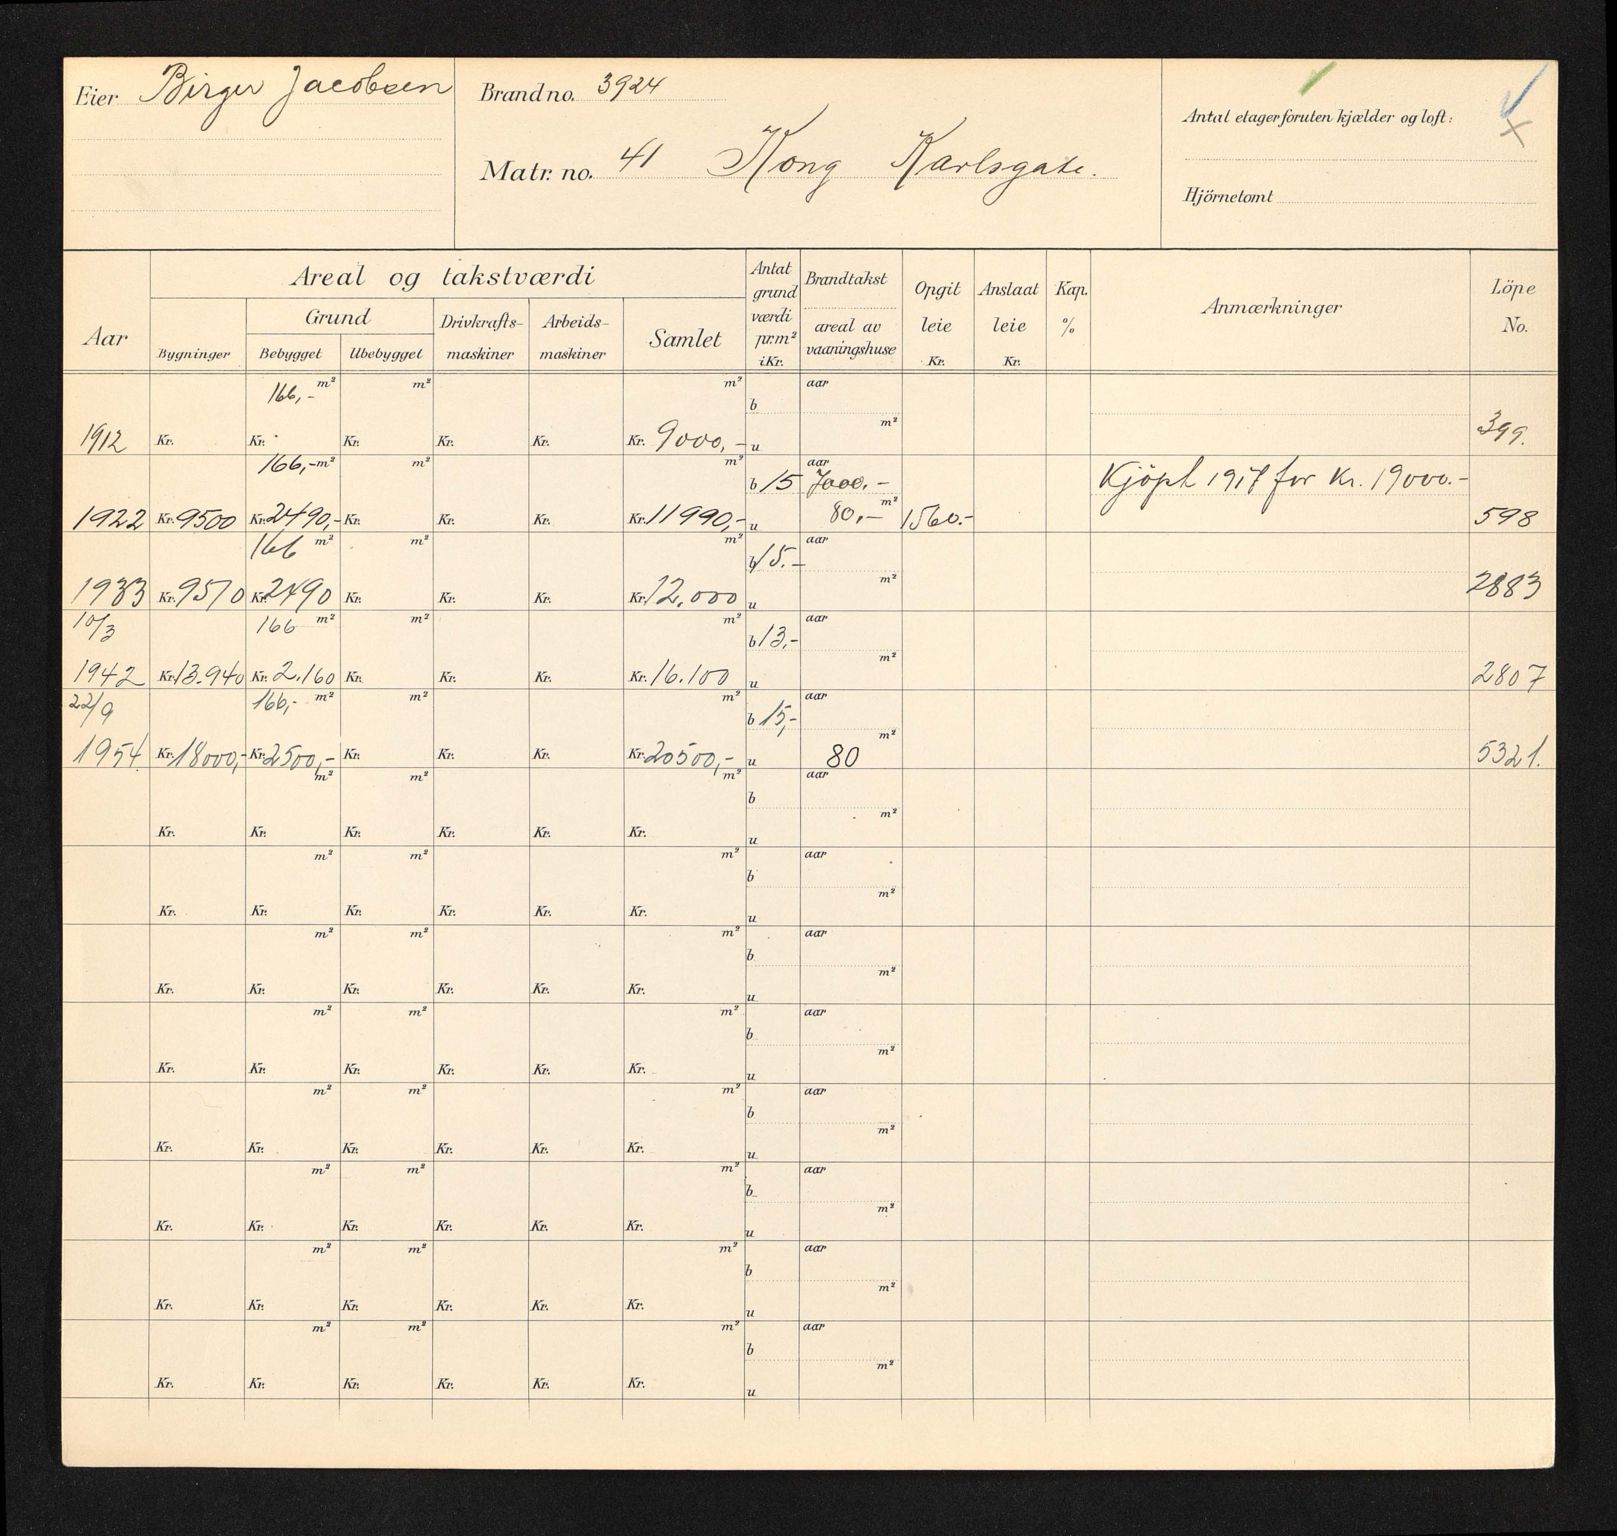 Eier Birger Jacobsen
Brand no. 3924
Matr. no. 41 Kong Karlsgate.
Antal etager foruten kjælder og loft:
Hjörnetomt
Aar
Areal og takstværdi
Bygninger
Grund
Bebygget
Ubebygget
Drivkrafts-maskiner
Arbeids-maskiner
Samlet
Antat grund værdi pr. m² i Kr.
Brandtakst
areal av vaaningshuse
Opgit leie Kr.
Anslaat leie Kr.
Kap. %
Anmærkninger
Löpe No.
166,- m² m² m² b aar
1912 Kr. Kr. Kr. Kr. Kr. Kr. 9000,- u m² 399.
166,- m² m² m² b 15 aar 7000.- Kjöpt 1917 for Kr. 19000.-
1922 Kr. 9500 Kr. 2490,- Kr. Kr. Kr. Kr. 11990,- u 80,- m² 1560.- 598
166 m² m² m² b 15.- aar
1933 Kr. 9510 Kr. 2490 Kr. Kr. Kr. Kr. 12.000 u m² 2883
10/3 166 m² m² m² b 13,- aar
1942 Kr. 13.940 Kr. 2.160 Kr. Kr. Kr. Kr. 16.100 u m² 2807
22/9 166,- m² m² m² b 15,- aar
1954 Kr. 18000,- Kr. 2500,- Kr. Kr. Kr. Kr. 20500,- u 80 m² 5321.
m² m² m² b aar
Kr. Kr. Kr. Kr. Kr. Kr. u m²
m² m² m² b aar
Kr. Kr. Kr. Kr. Kr. Kr. u m²
m² m² m² b aar
Kr. Kr. Kr. Kr. Kr. Kr. u m²
m² m² m² b aar
Kr. Kr. Kr. Kr. Kr. Kr. u m²
m² m² m² b aar
Kr. Kr. Kr. Kr. Kr. Kr. u m²
m² m² m² b aar
Kr. Kr. Kr. Kr. Kr. Kr. u m²
m² m² m² b aar
Kr. Kr. Kr. Kr. Kr. Kr. u m²
m² m² m² b aar
Kr. Kr. Kr. Kr. Kr. Kr. u m²